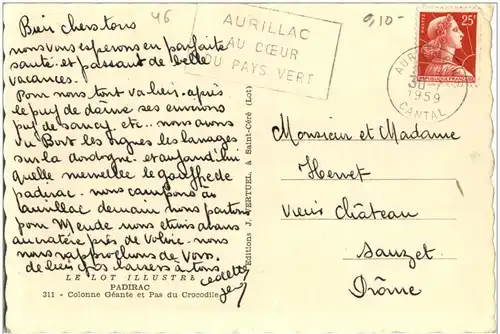 46
9,10-
AURILLAC
AU CŒUR
DU PAYS VERT
25F
RÉPUBLIQUE FRANÇAISE
POSTES
1959
CANTAL
Bien chers tous
nous vous esperons en parfaite
santé et passant de belle
vacances.
Pour nous tout va bien. après
le puy de dôme ses environs
puy de sancy etc.. nous avons vu
Bort les orgues les barrages
sur la dordogne. et aujourd'hui
quelle merveille le gouffre de
padirac. nous campons à
aurillac demain nous partons
pour Mende nous étions
au cratère près de Volvic. nous
nous rapprochons de Vous.
de bien gros baisers à tous
Monsieur et Madame
Hervet
vieux Château
Sauzet
Drôme
Editions J. VERTUEL, à Saint-Céré (Lot)
LE LOT ILLUSTRÉ
PADIRAC
311 - Colonne Géante et Pas du Crocodile